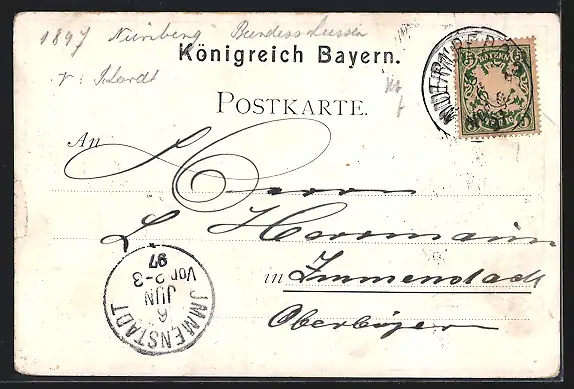 1897 Nürnberg Bundesschiessen
Königreich Bayern.
POSTKARTE.
An
Herrn
L. Herrmann
in Immenstadt
Oberbayern
IMMENSTADT
6
JUN
Vor 2-3
97
NÜRNBERG
BAYERN